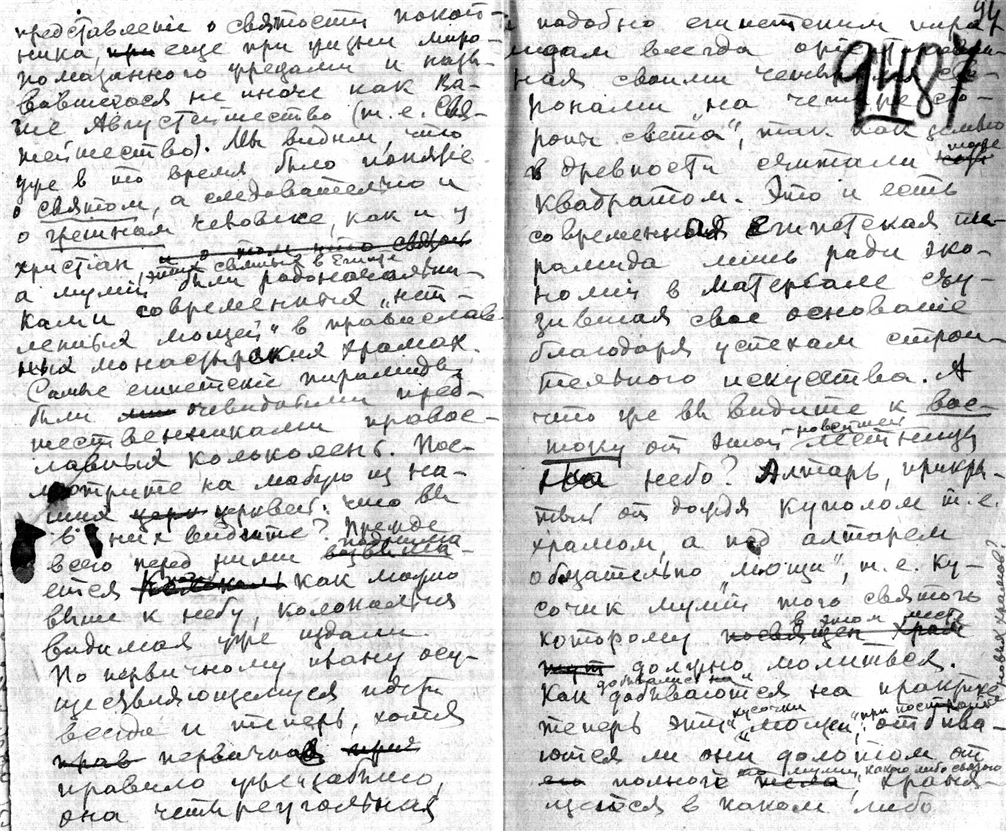 представленiе о святости покой-
ника, при еще при жизни миро-
помазанного жрецами и назы-
вавшегося не иначе как Ва-
ше Августейшество (т. е. Свя-
тейшество). Мы видим, что
уже в то время было понятiе
о святом, а следовательно и
о грешном человеке, как и у
христiан и о том что святой
этих святых в Египте
а мумiи были родоначальни-
ками современных „нет-
ленных мощей" в православ
ных монастырских храмах
Самые египетскiе пирамиды
были очевидными пред-
шественниками правос-
лавных колоколень. Пос-
мотрите на любую из на-
ших церк церквей. что вы
в них видите? Прежде
всего перед ними возвыша-
ется как можно
выше к небу, колокольня
видимая уже издали.
По первичному плану осу-
ществляющемуся почти
всегда и теперь, хотя
прав первичное
правило уже забыто,
она четыреугольная
94
948
подобно египетским пира-
мидам всегда орiентирован-
ная своими четырьмя сто-
ронами „на четыре сто-
роны света", так как землю
тоже
в древности считали
квадратом. Это и есть
современная Египетская пи
рамида лишь ради эко-
номiи в матерiале су-
зившая свое основанiе
благодаря успехам строи-
тельного искусства. А
что же вы видите к вос-
току от этой лестницы
на небо? Алтарь, прикры
тый от дождя куполом т. е.
храмом, а под алтарем
обязательно „мощи", т. е. ку-
сочик мумiи того святого
в этом месте
которому посвящен храм
должно молиться.
добывались и
Как добываются на практике
кусочки при постройке
теперь эти „мощи", отбива-
ются ли они долотом от
мумии какого либо святого
полного тела, храня-
щегося в каком либо